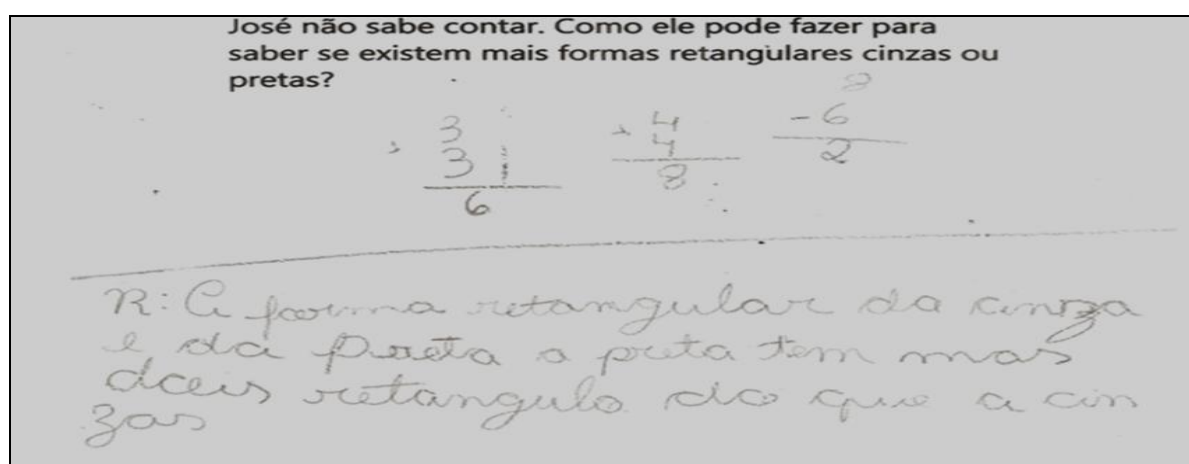 José não sabe contar. Como ele pode fazer para
saber se existem mais formas retangulares cinzas ou
pretas?
8
3 + 4 - 6
3 4 2
6 8
R: A forma retangular da cinza
e da Preta a preta tem mas
dois retangulo do que a cin
zas